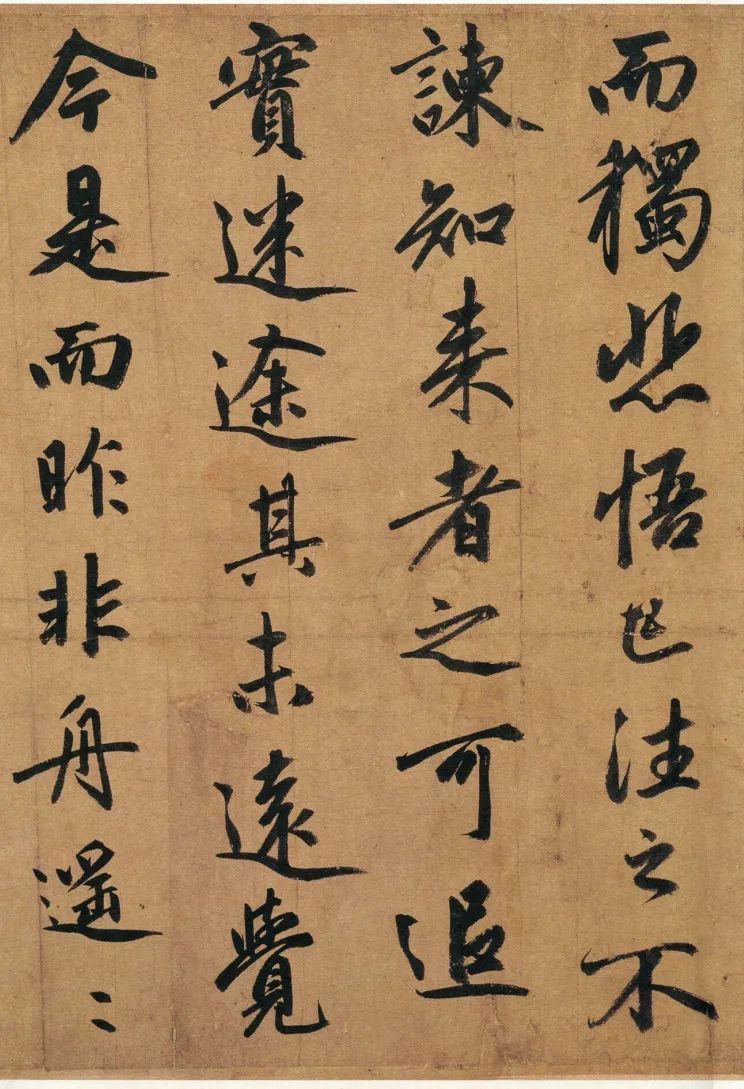 而獨悲悟已往之不
諫知来者之可追
實迷途其未遠覺
今是而昨非舟遥〻